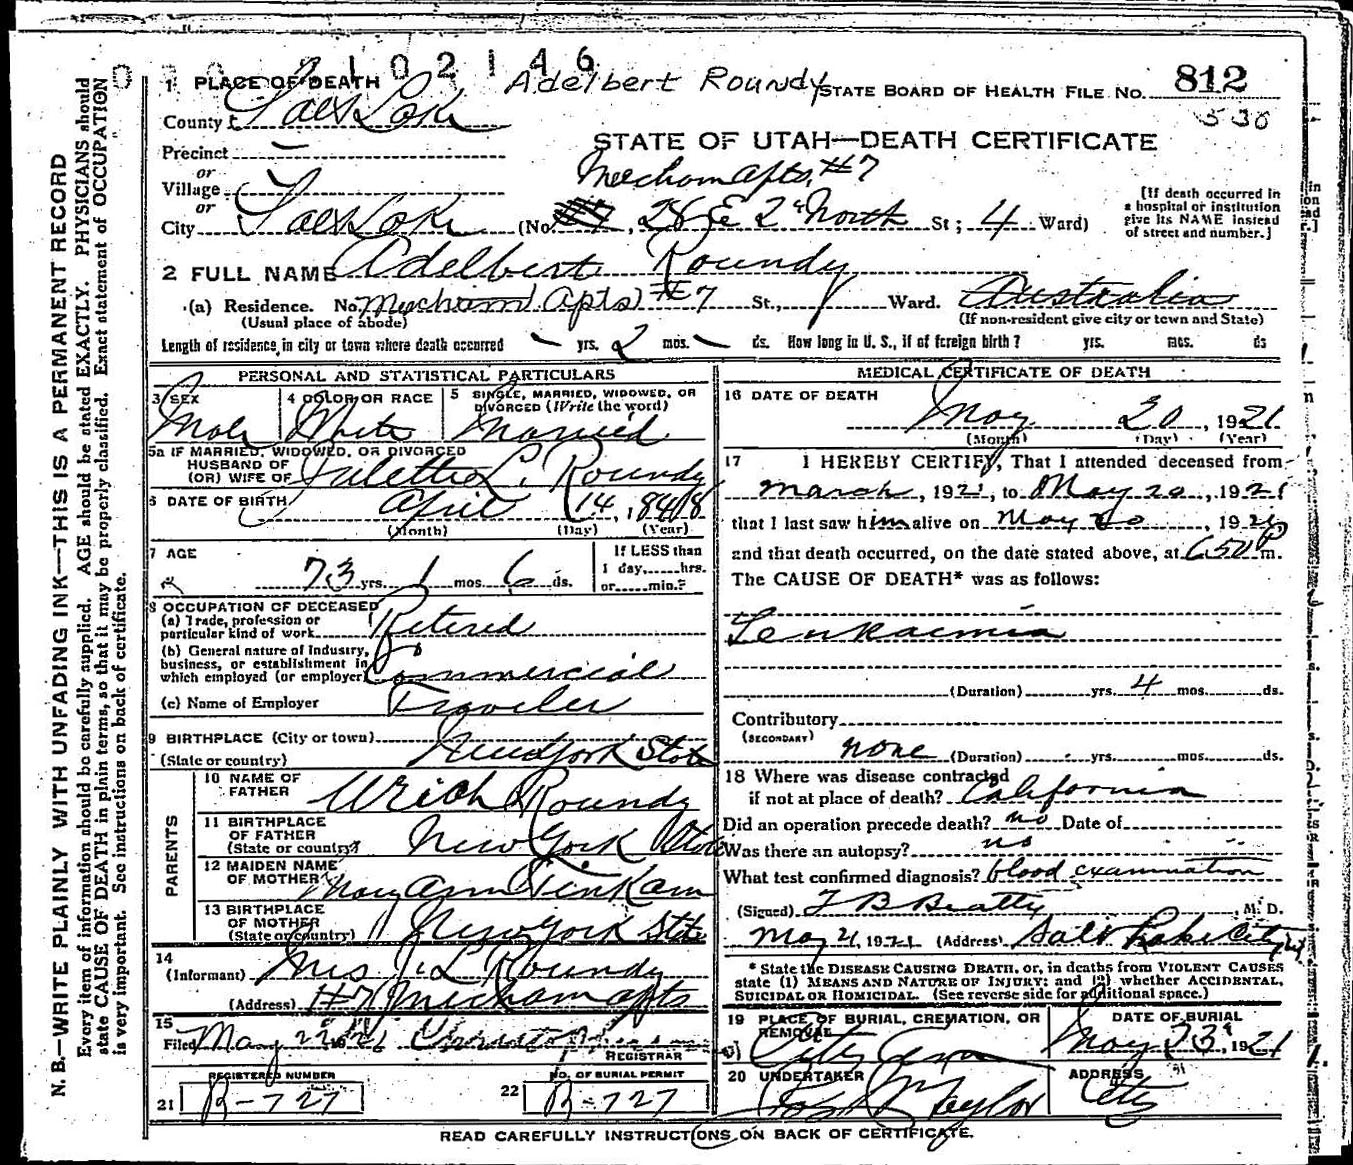 102146
Adelbert Roundy
1 PLACE OF DEATH
STATE BOARD OF HEALTH FILE NO. 812
County Salt Lake
530
STATE OF UTAH—DEATH CERTIFICATE
Precinct —
or
Mecham Apts. #7
Village
or
[If death occurred in a hospital or institution give its NAME instead of street and number.]
City Salt Lake (No. 28 E 2d North St; 4 Ward)
2 FULL NAME Adelbert Roundy
(a) Residence. No. Mecham Apts #7 St., Ward. Australia
(Usual place of abode) (If non-resident give city or town and State)
Length of residence in city or town where death occurred — yrs. 2 mos. — ds. How long in U. S., if of foreign birth? yrs. mos. ds
PERSONAL AND STATISTICAL PARTICULARS
3 SEX Male
4 COLOR OR RACE White
5 SINGLE, MARRIED, WIDOWED, OR DIVORCED (Write the word) Married
5a IF MARRIED, WIDOWED, OR DIVORCED
HUSBAND OF
(OR) WIFE OF L. Roundy
6 DATE OF BIRTH April 14, 1848
(Month) (Day) (Year)
7 AGE 73 yrs. 1 mos. 6 ds.
If LESS than
1 day,......hrs.
or......min.?
8 OCCUPATION OF DECEASED
(a) Trade, profession or
particular kind of work Retired
(b) General nature of Industry,
business, or establishment in
which employed (or employer) Commercial
(c) Name of Employer Traveler
9 BIRTHPLACE (City or town)
(State or country) New York State
PARENTS
10 NAME OF FATHER Roundy
11 BIRTHPLACE OF FATHER
(State or country) New York State
12 MAIDEN NAME OF MOTHER Mary Ann
13 BIRTHPLACE OF MOTHER
(State or country) New York State
14
(Informant) Mrs J. L. Roundy
(Address) #7 Mecham apts
15
Filed May
REGISTRAR
REGISTERED NUMBER
21 B-727
NO. OF BURIAL PERMIT
22 B-727
MEDICAL CERTIFICATE OF DEATH
16 DATE OF DEATH May 20, 1921
(Month) (Day) (Year)
17 I HEREBY CERTIFY, That I attended deceased from
March, 1921, to May 20, 1921
that I last saw him alive on May 20, 1921,
and that death occurred, on the date stated above, at 6.50 P m.
The CAUSE OF DEATH* was as follows:
Leukaemia
(Duration) yrs. 4 mos. ds.
Contributory
(SECONDARY)
none (Duration) yrs. mos. ds.
18 Where was disease contracted
if not at place of death? California
Did an operation precede death? no Date of
Was there an autopsy? no
What test confirmed diagnosis? blood examination
(Signed) T B Beatty, M. D.
May 21, 1921 (Address) Salt Lake City
* State the DISEASE CAUSING DEATH, or, in deaths from VIOLENT CAUSES
state (1) MEANS AND NATURE OF INJURY; and (2) whether ACCIDENTAL,
SUICIDAL OR HOMICIDAL. (See reverse side for additional space.)
19 PLACE OF BURIAL, CREMATION, OR REMOVAL City Cem
DATE OF BURIAL May 23, 1921
20 UNDERTAKER Taylor
ADDRESS City
READ CAREFULLY INSTRUCTIONS ON BACK OF CERTIFICATE.
N. B.—WRITE PLAINLY WITH UNFADING INK—THIS IS A PERMANENT RECORD
Every item of information should be carefully supplied. AGE should be stated EXACTLY. PHYSICIANS should
state CAUSE OF DEATH in plain terms, so that it may be properly classified. Exact statement of OCCUPATION
is very important. See instructions on back of certificate.